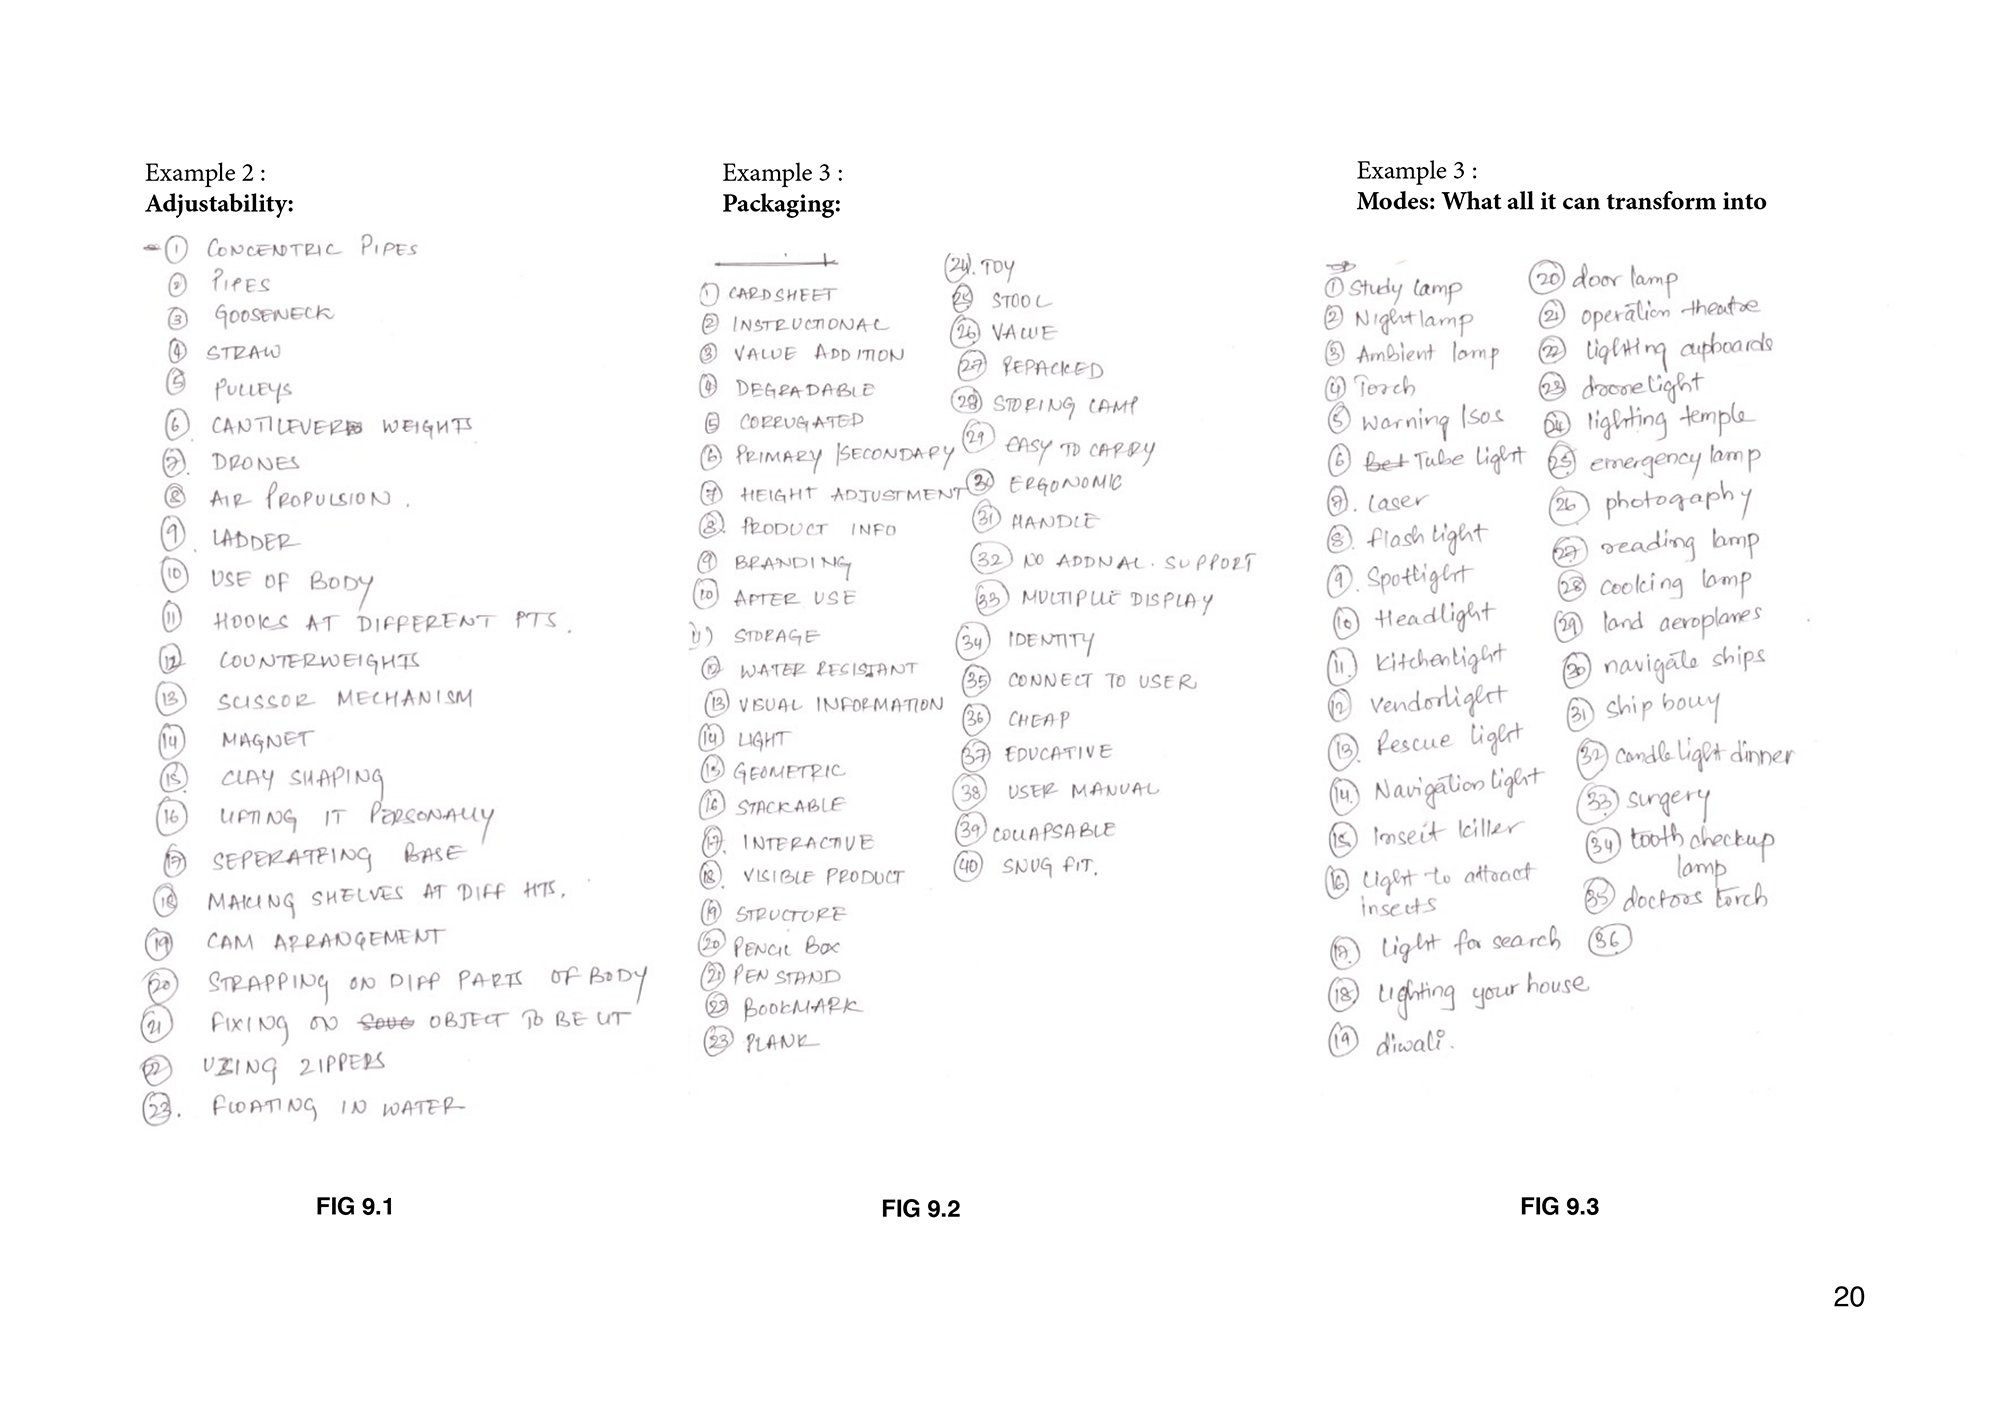 Example 2 :
Adjustability:
① CONCENTRIC PIPES
② PIPES
③ GOOSENECK
④ STRAW
⑤ PULLEYS
⑥ CANTILEVER WEIGHTS
⑦. DRONES
⑧ AIR PROPULSION .
⑨. LADDER
⑩ USE OF BODY
⑪ HOOKS AT DIFFERENT PTS .
⑫ COUNTERWEIGHTS
⑬ SCISSOR MECHANISM
⑭ MAGNET
⑮ CLAY SHAPING
⑯ LIFTING IT PERSONALLY
⑰ SEPERATEING BASE
⑱ MAKING SHELVES AT DIFF HTS.
⑲ CAM ARRANGEMENT
⑳ STRAPPING ON DIFF PARTS OF BODY
㉑ FIXING ON OBJECT TO BE LIT
㉒ USING ZIPPERS
㉓. FLOATING IN WATER
FIG 9.1
Example 3 :
Packaging:
① CARDSHEET
② INSTRUCTIONAL
③ VALUE ADDITION
④ DEGRADABLE
⑤ CORRUGATED
⑥ PRIMARY /SECONDARY
⑦ HEIGHT ADJUSTMENT
⑧. PRODUCT INFO
⑨ BRANDING
⑩ AFTER USE
11) STORAGE
⑫ WATER RESISTANT
⑬ VISUAL INFORMATION
⑭ LIGHT
⑮ GEOMETRIC
⑯ STACKABLE
⑰. INTERACTIVE
⑱. VISIBLE PRODUCT
⑲ STRUCTURE
⑳ PENCIL BOX
㉑ PEN STAND
㉒ BOOKMARK
㉓ PLANK
㉔. TOY
㉕ STOOL
㉖ VALUE
㉗ REPACKED
㉘ STORING LAMP
㉙ EASY TO CARRY
㉚ ERGONOMIC
㉛ HANDLE
㉜ NO ADDNAL. SUPPORT
㉝ MULTIPLE DISPLAY
㉞ IDENTITY
㉟ CONNECT TO USER
㊱ CHEAP
㊲ EDUCATIVE
㊳ USER MANUAL
㊴ COLLAPSABLE
㊵ SNUG FIT.
FIG 9.2
Example 3 :
Modes: What all it can transform into
① Study lamp
② Nightlamp
③ Ambient lamp
④ Torch
⑤ Warning /SOS
⑥ Tube light
⑦. Laser
⑧. flash light
⑨. Spotlight
⑩ Headlight
⑪. Kitchenlight
⑫ Vendorlight
⑬. Rescue light
⑭. Navigation light
⑮ Insect killer
⑯ Light to attract
insects
⑰. Light for search
⑱ Lighting your house
⑲ diwali.
⑳ door lamp
㉑ operation theatre
㉒ lighting cupboards
㉓ dronelight
㉔ lighting temple
㉕ emergency lamp
㉖ photography
㉗ reading lamp
㉘ cooking lamp
㉙ land aeroplanes
㉚ navigate ships
㉛ ship bouy
㉜ candle light dinner
㉝ surgery
㉞ tooth checkup
lamp
㉟ doctors torch
㊱
FIG 9.3
20